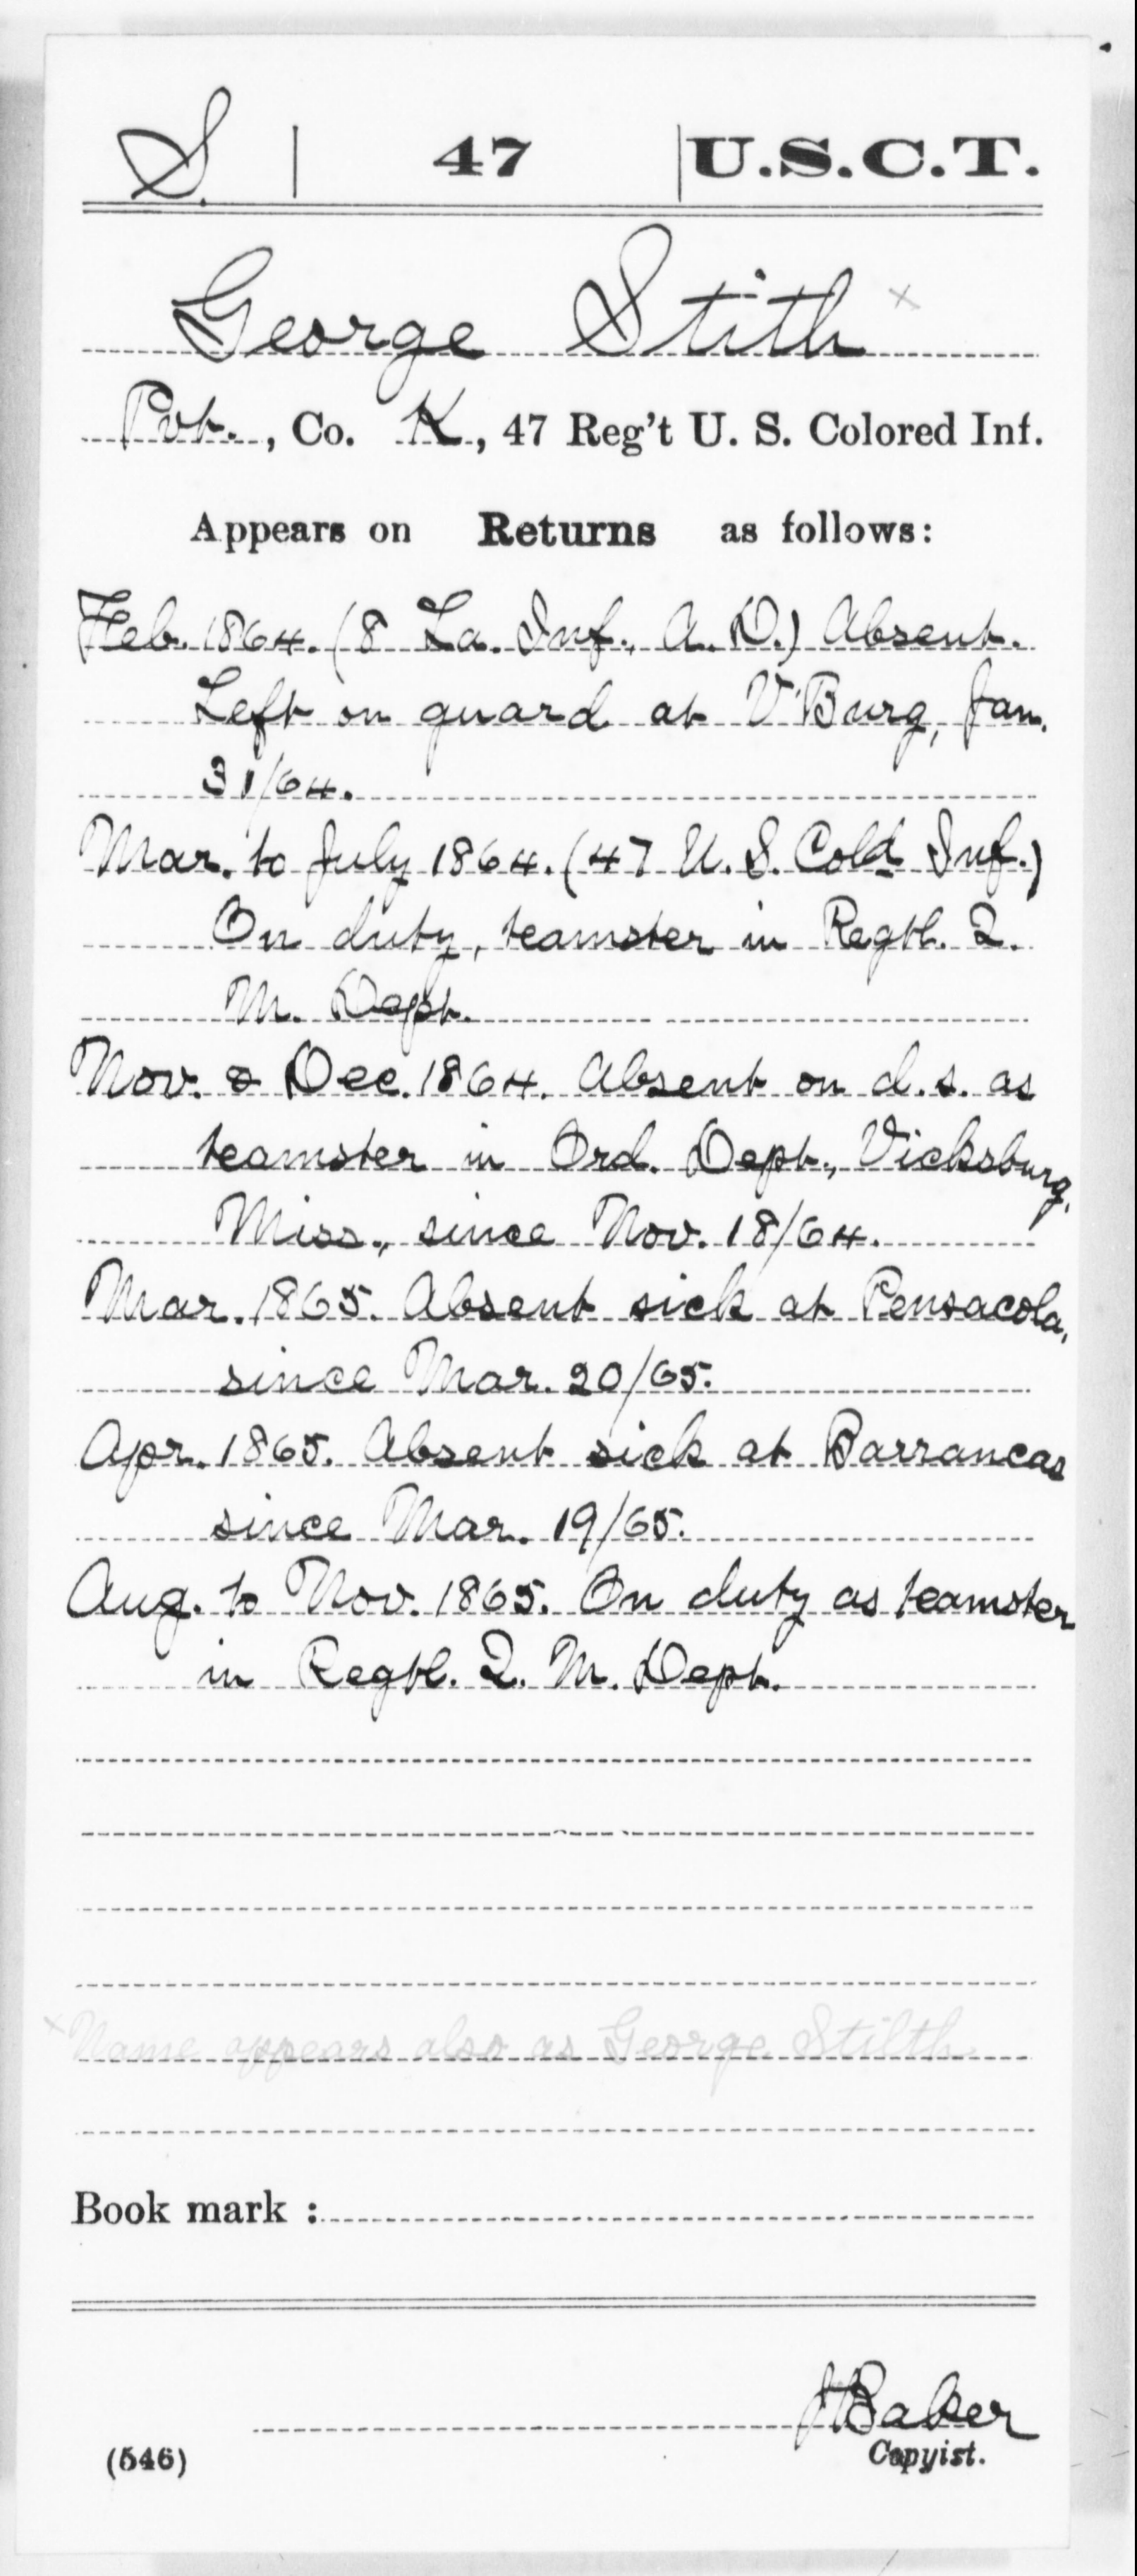 S. | 47 | U.S.C.T.
George Stith x
Pvt., Co. K, 47 Reg't U. S. Colored Inf.
Appears on Returns as follows:
Feb. 1864. (8 La. Inf., A. D.) Absent.
Left on guard at V'Burg, Jan.
31/64.
Mar. to July 1864. (47 U. S. Cold Inf.)
On duty, teamster in Regtl. Q.
M. Dept.
Nov. & Dec. 1864. Absent on d.s. as
teamster in Ord. Dept., Vicksburg,
Miss., since Nov. 18/64.
Mar. 1865. Absent sick at Pensacola,
since Mar. 20/65.
Apr. 1865. Absent sick at Barrancas
since Mar. 19/65.
Aug. to Nov. 1865. On duty as teamster
in Regtl. Q. M. Dept.
x Name appears also as George Stilth
Book mark :
Baker
(546) Copyist.